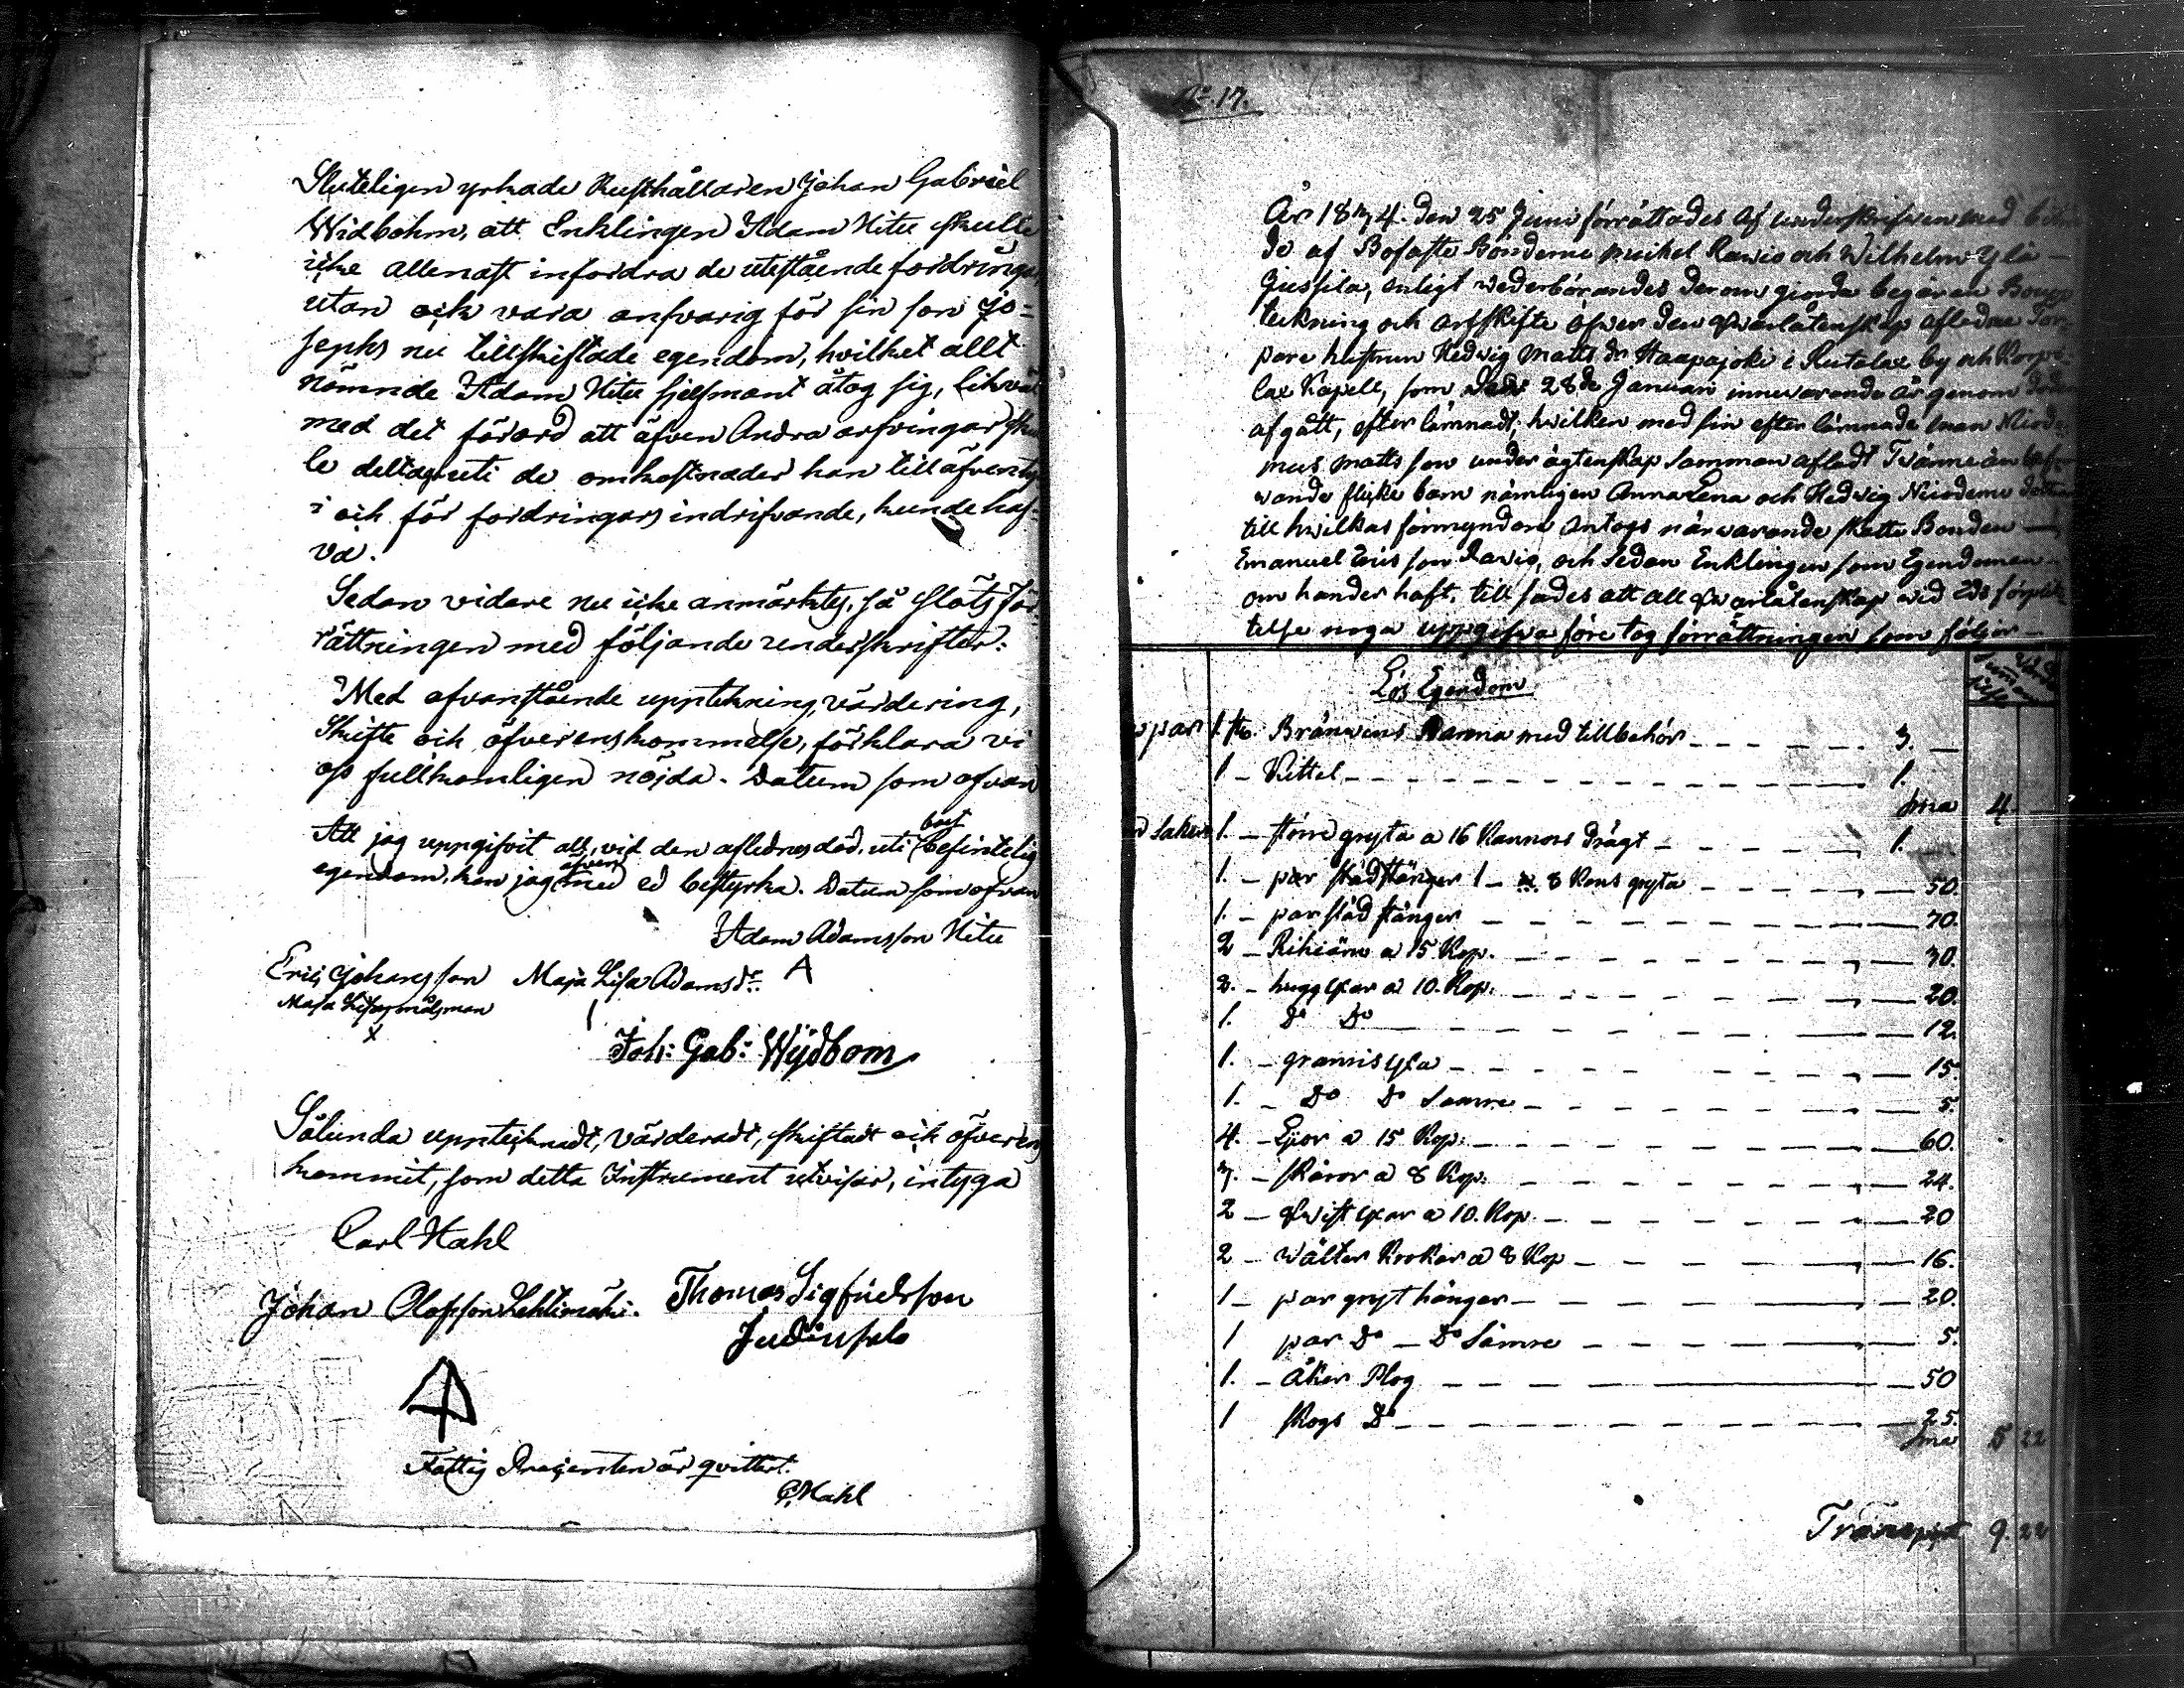 Sluteligen yrkade Rusthållaren Johan Gabriel
Widbohm, att Enklingen Adam Hitu skulle
icke allenast infordra de utestående fordringar,
utan och vara ansvarig för sin son Jo=
sephs nu tillskiftade egendom, hvilket allt
nämnde Adam Hitu sjelfmant åtog sig, likväl
med det förord att äfven Andra arfvingar sku
le deltaga uti de omkostnader han till äfventy
i och för fordringars indrifvande, kunde haf=
va.
Sedan vidare nu icke anmärktes, så slöts för
rättningen med följande underskrifter:
Med ofvanstående uppteckning, värdering,
Skifte och öfverenskommelse, förklara vi
oss fullkomligen nöjda. Datum som ofvan
Att jag uppgifvit all, vid den aflednes död, uti boet befintelig
egendom, kan jag äfven med ed bestyrka. Datum som ofvan
Adam Adamsson Hitu
Eric Johansson Maja Lisa Adamsdr. A
Maja Lisas målsman
X
Joh: Gab: Wÿdbom
Sålunda upptecknadt, värderadt, skiftadt och öfverens
kommit, som detta Instrument utvisar, intyga
Carl Hahl
Johan Olofsson Lehtimäki. Thomas Sigfridsson
Fattig Procenten är qvittert.
C. Hahl
No. 17.
År 1874. den 25 Juni förrättades af underskrifven med biträ
de af Bofaste Bönderne Mickel Rawio och Wilhelm Yli-
Jussila, enligt wederbörandes derom giorda begäran Boupp
teckning och arfskifte öfwer den qwarlåtenskap afledne Tor
pare hustrun Hedwig Matts dr Haapajoki i Rutalax by och Korpi
lax Kapell, som den 28de Januari innewarande år genom döden
afgått, efter lämnadt; hwilken med sin efter lämnade man Niode
mus Matts son under ägtenskap samman aflat Twänne än lef
wande flicke barn nämligen Anna Lena och Hedwig Niodemi döttrar
till hwilkas förmyndare antogs närwarande skatte Bonden
Emanuel Eriks son Rawio, och sedan Enklingen som Egendomen
om händer haft. till sades att all qwarlåtenskap wid Eds förplik
telse noga uppgifwa före tog förrättningen som följer —
Lös Egendom
par 1 st. Bränwins Panna med tillbehör 3. —
1 — Kittel 1.
Sma 4
saker 1. — större gryta a 16 Kannors drägt 1.
1. — par städ stänger 1 — 8 Kans gryta 50.
1. — par städ stänger 70.
2 — Rihiärn a 15 Kop. 30.
2. — hugg yxor a 10. Kop. 20.
1. Do Do 12.
1. — yxa 15.
1. — Do Do Samre 5.
4. — Lior a 15 Kop: 60.
3. — skäror a 8 Kop. 24.
2 — qwist yxor a 10. Kop 20
2 — wälter Krokar a 8 Kop 16.
1 — par gryt hängar 20.
1 par Do — Do Sämre 5.
1. — Åker Plog 50
1 Skogs Do 25.
Sma 5 22
Transport 9. 22